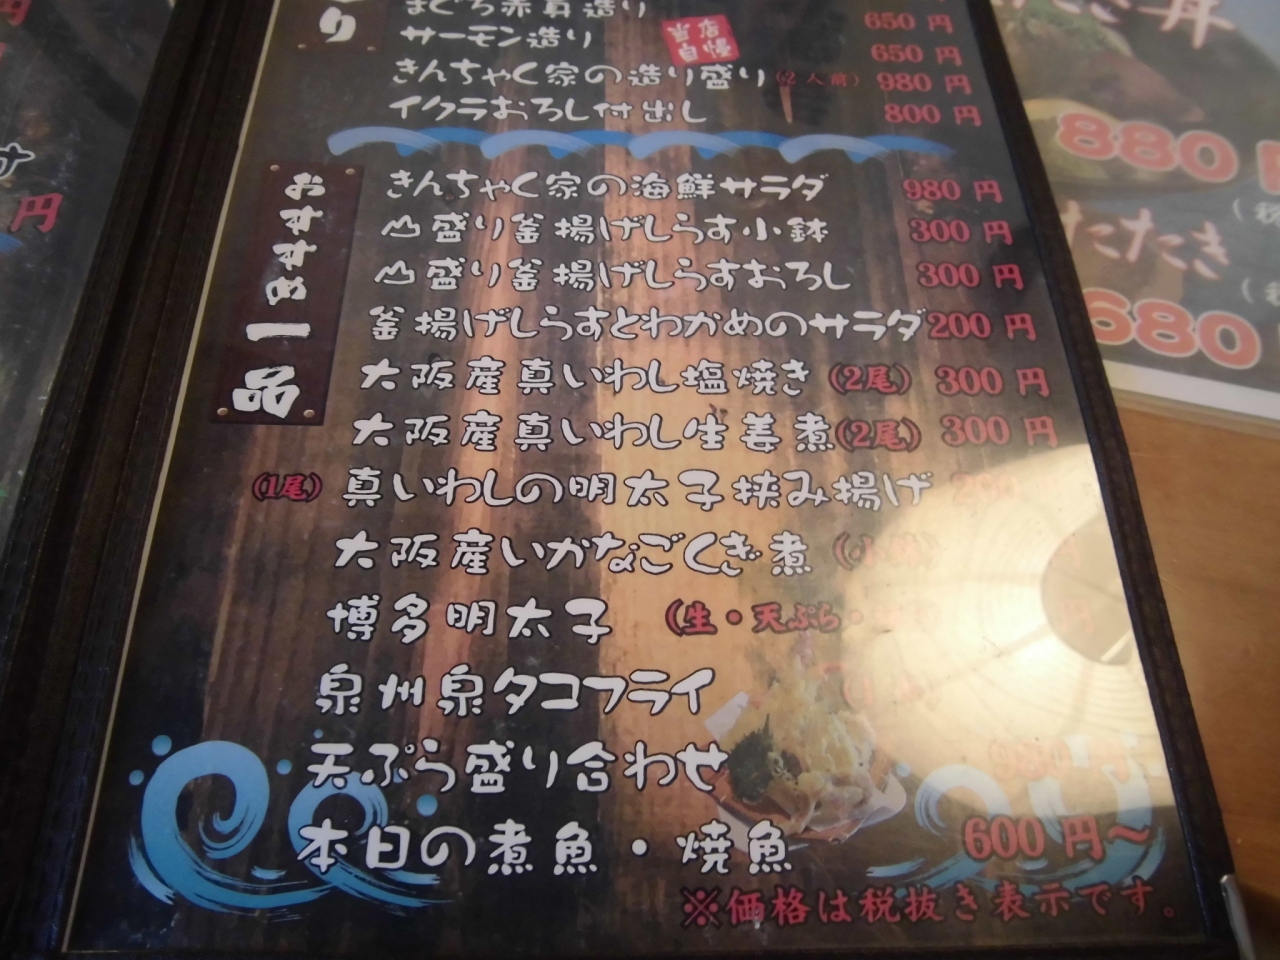 まぐろ赤身造り 650 円
サーモン造り 650 円
当店自慢
きんちゃく家の造り盛り(2人前) 980 円
イクラおろし付出し 800 円
おすすめ一品
きんちゃく家の海鮮サラダ 980 円
山盛り釜揚げしらす小鉢 300 円
山盛り釜揚げしらすおろし 300 円
釜揚げしらすとわかめのサラダ 200 円
大阪産真いわし塩焼き(2尾) 300 円
大阪産真いわし生姜煮(2尾) 300 円
(1尾) 真いわしの明太子挟み揚げ
大阪産いかなごくぎ煮
博多明太子 (生・天ぷら・
泉州泉タコフライ
天ぷら盛り合わせ
本日の煮魚・焼魚 600 円～
※価格は税抜き表示です。
880
たたき
680
円